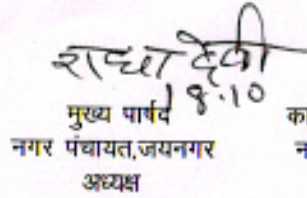 राधा देवी
18.10
मुख्य पार्षद क
नगर पंचायत,जयनगर न
अध्यक्ष